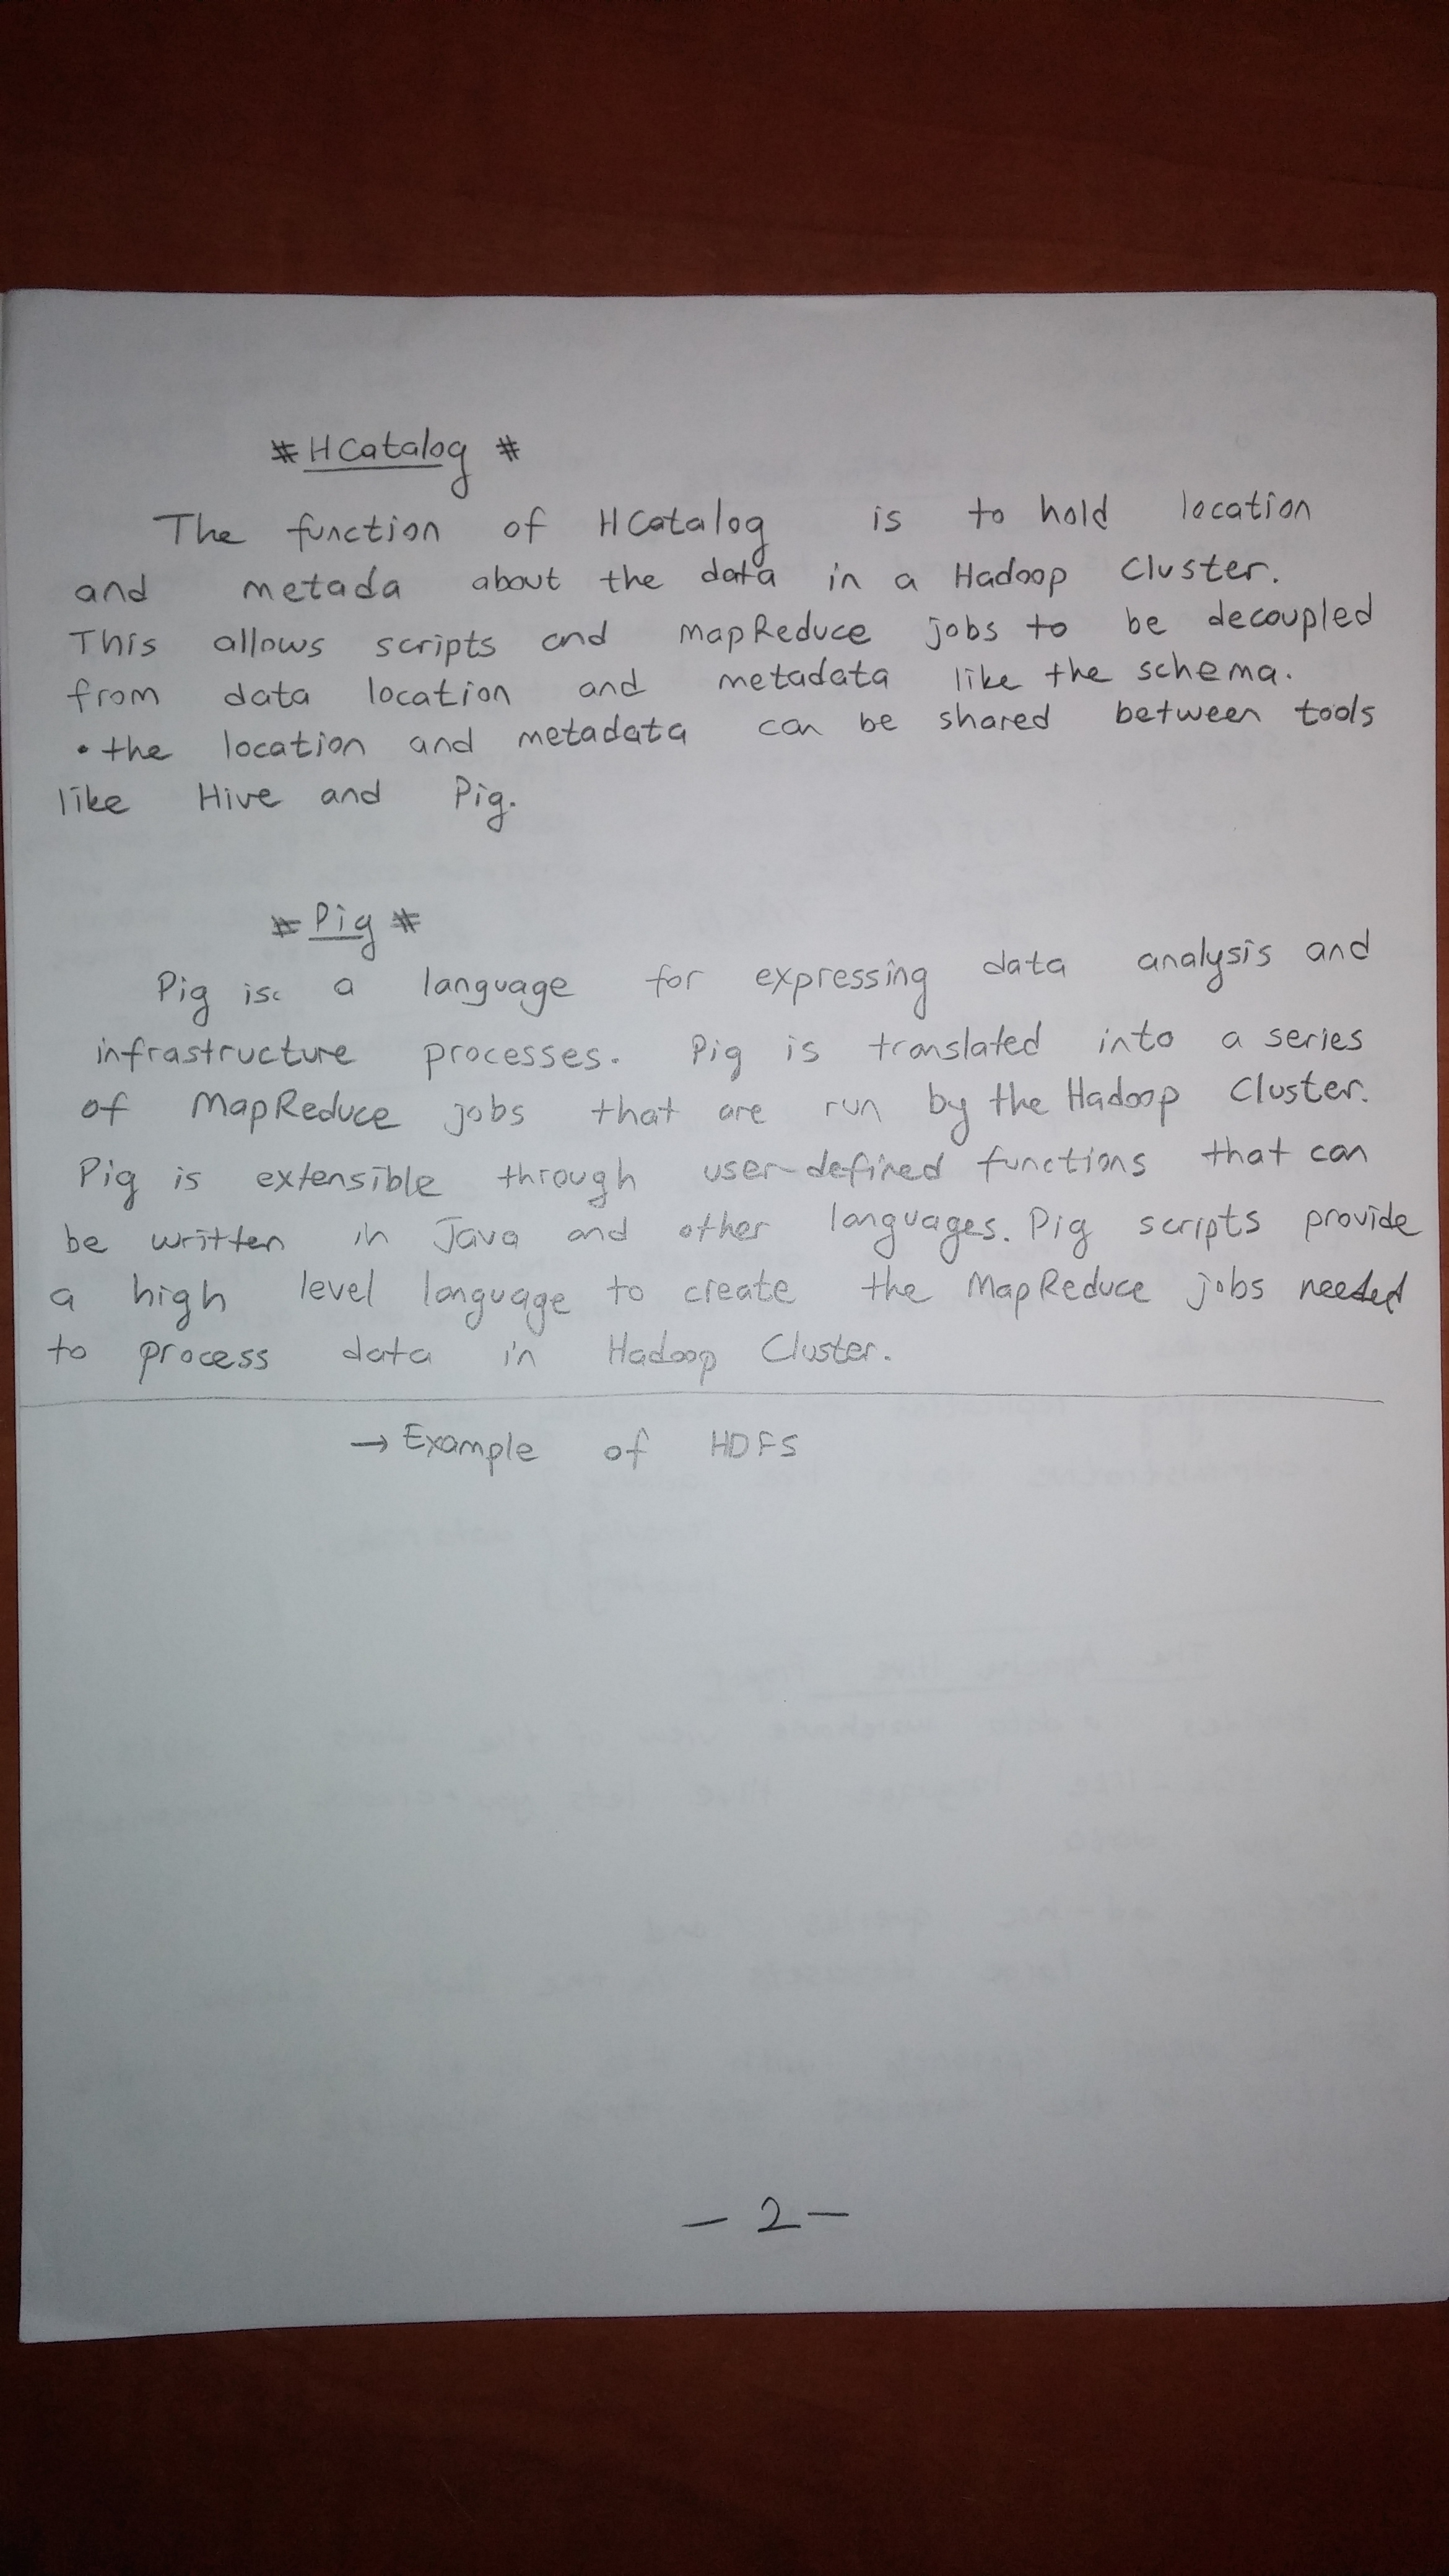 # HCatalog #
The function of HCatalog is to hold location
and metada about the data in a Hadoop Cluster.
This allows scripts and MapReduce jobs to be decoupled
from data location and metadata like the schema.
• the location and metadata can be shared between tools
like Hive and Pig.
# Pig #
Pig is a language for expressing data analysis and
infrastructure processes. Pig is translated into a series
of MapReduce jobs that are run by the Hadoop Cluster.
Pig is extensible through user-defined functions that can
be written in Java and other languages. Pig scripts provide
a high level language to create the MapReduce jobs needed
to process data in Hadoop Cluster.
→ Example of HDFS
- 2 -